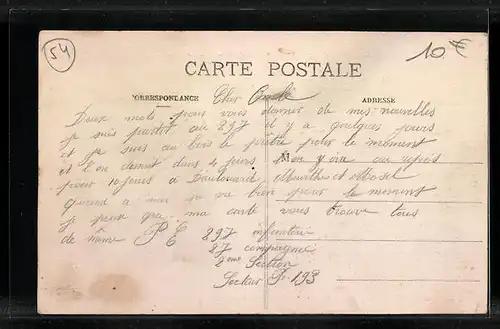 54
10 €
CARTE POSTALE
CORRESPONDANCE
Cher Oncle
ADRESSE
Deux mots pour vous donner de mes nouvelles
je suis partit au 297 il y a quelques jours
et je suis au bois le prêtre pour le moment
et l'on demeit dans 4 jours l'on y ira au repos
M
pour 10 jours à Meurthe et Mosel
quand a moi je va bien pour le moment
je pense que ma carte vous trouve tous
de même P E 297 infanterie
27 compagnie
2eme Section
Secteur P. 193